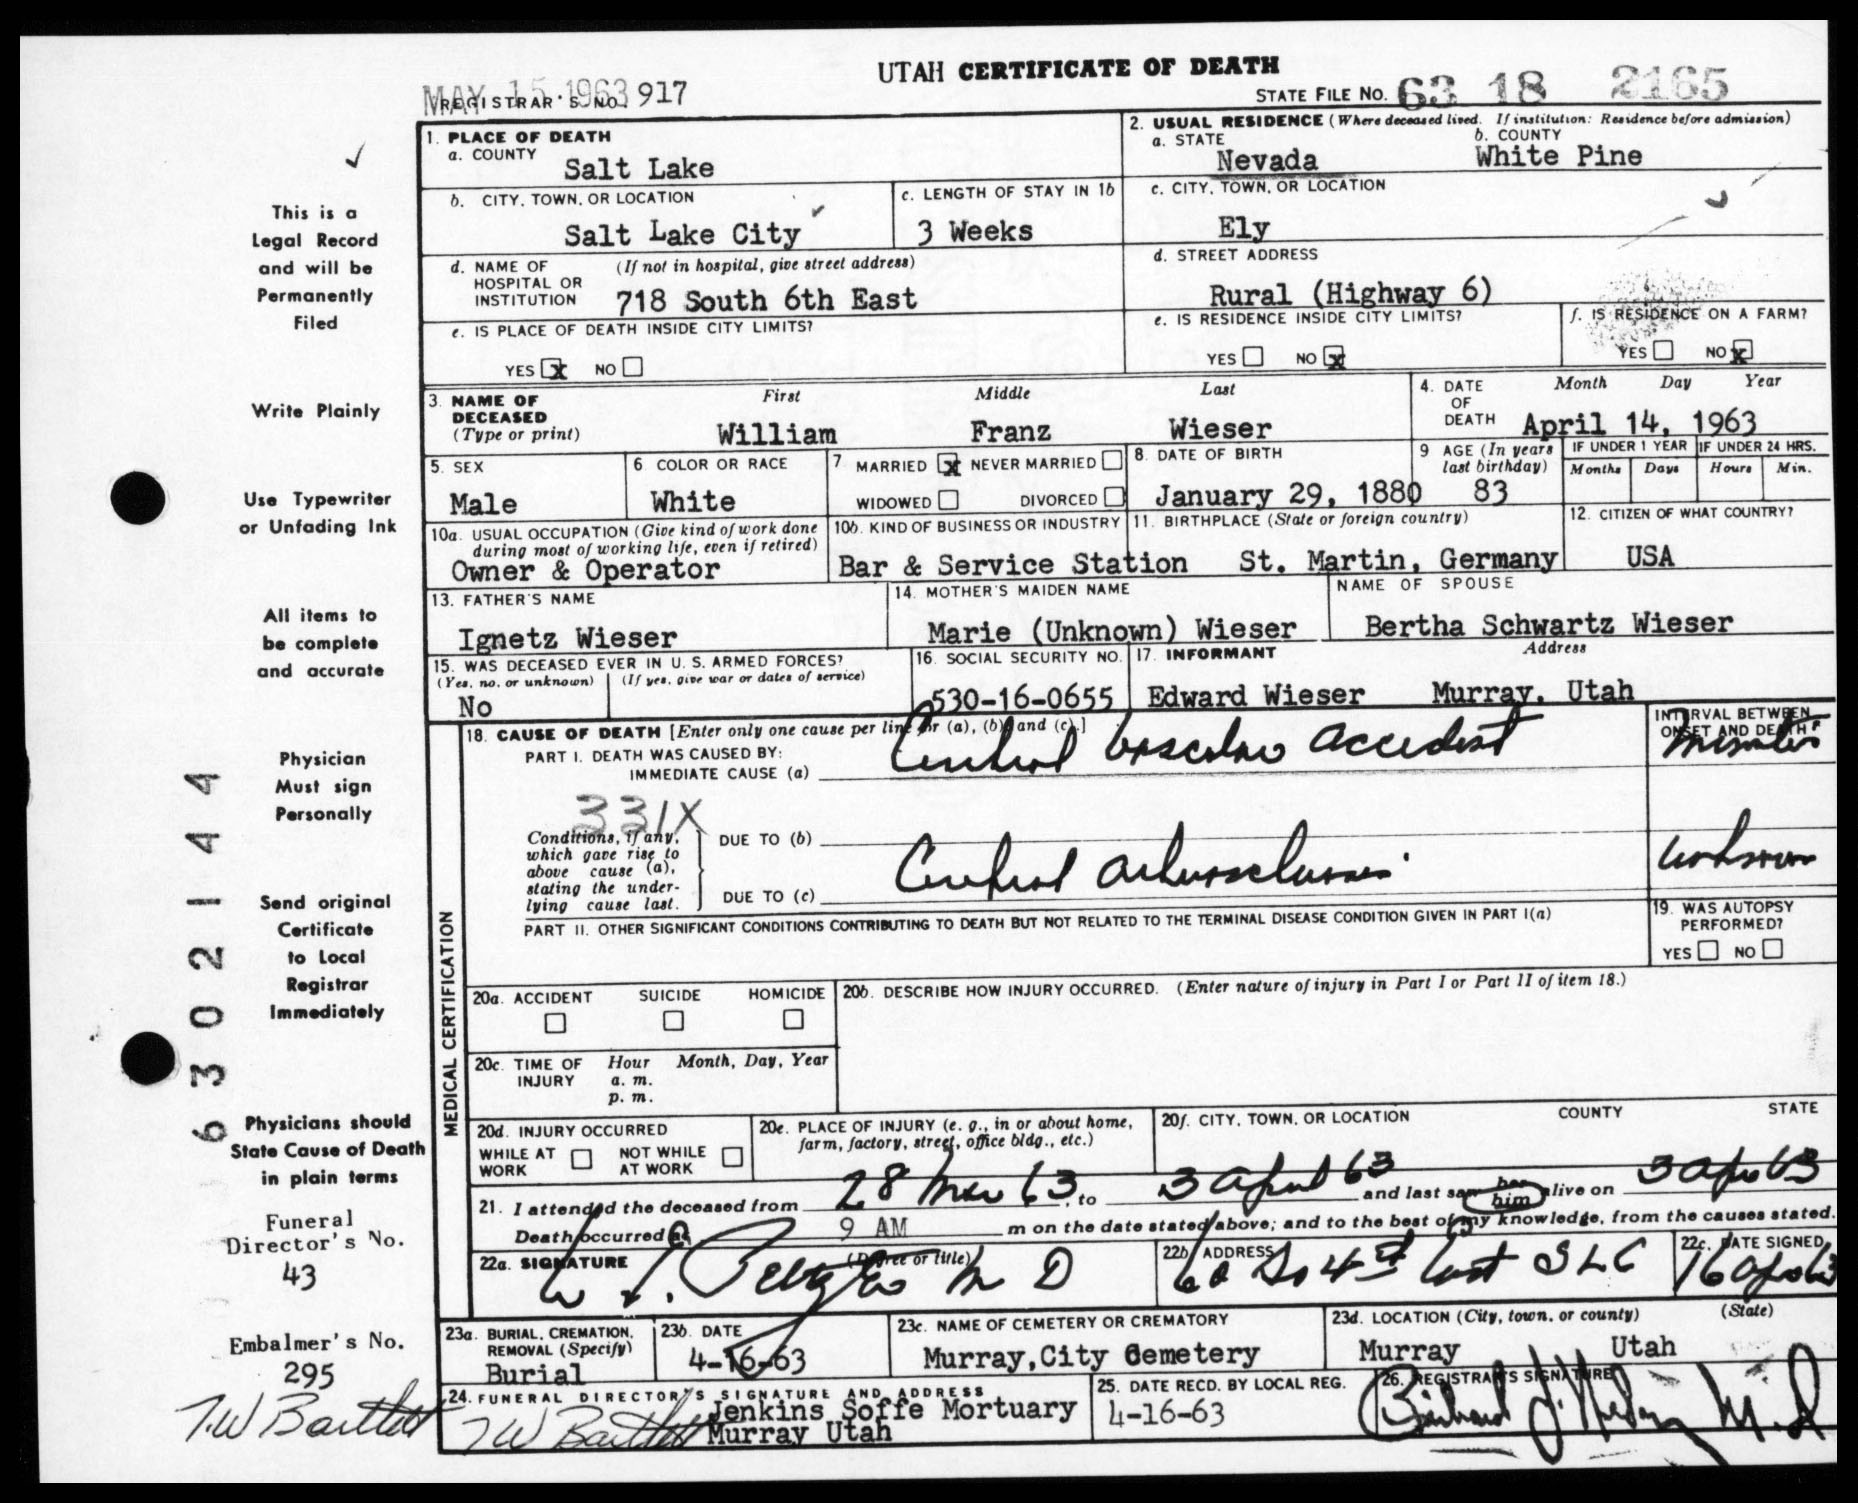 UTAH CERTIFICATE OF DEATH
MAY 15 1963
REGISTRAR'S NO. 917
STATE FILE NO. 63 18 2165
1. PLACE OF DEATH
a. COUNTY
Salt Lake
2. USUAL RESIDENCE (Where deceased lived. If institution: Residence before admission)
a. STATE
Nevada
b. COUNTY
White Pine
b. CITY, TOWN, OR LOCATION
Salt Lake City
c. LENGTH OF STAY IN 1b
3 Weeks
c. CITY, TOWN, OR LOCATION
Ely
d. NAME OF HOSPITAL OR INSTITUTION
(If not in hospital, give street address)
718 South 6th East
d. STREET ADDRESS
Rural (Highway 6)
e. IS PLACE OF DEATH INSIDE CITY LIMITS?
YES x NO
e. IS RESIDENCE INSIDE CITY LIMITS?
YES NO x
f. IS RESIDENCE ON A FARM?
YES NO x
3. NAME OF DECEASED
(Type or print)
First Middle Last
William Franz Wieser
4. DATE OF DEATH
Month Day Year
April 14, 1963
5. SEX
Male
6. COLOR OR RACE
White
7. MARRIED x NEVER MARRIED
WIDOWED DIVORCED
8. DATE OF BIRTH
January 29, 1880
9. AGE (In years last birthday)
83
IF UNDER 1 YEAR
Months Days
IF UNDER 24 HRS.
Hours Min.
10a. USUAL OCCUPATION (Give kind of work done during most of working life, even if retired)
Owner & Operator
10b. KIND OF BUSINESS OR INDUSTRY
Bar & Service Station
11. BIRTHPLACE (State or foreign country)
St. Martin, Germany
12. CITIZEN OF WHAT COUNTRY?
USA
13. FATHER'S NAME
Ignetz Wieser
14. MOTHER'S MAIDEN NAME
Marie (Unknown) Wieser
NAME OF SPOUSE
Bertha Schwartz Wieser
15. WAS DECEASED EVER IN U. S. ARMED FORCES?
(Yes, no, or unknown) (If yes, give war or dates of service)
No
16. SOCIAL SECURITY NO.
530-16-0655
17. INFORMANT
Address
Edward Wieser Murray, Utah
MEDICAL CERTIFICATION
18. CAUSE OF DEATH [Enter only one cause per line for (a), (b), and (c).]
PART I. DEATH WAS CAUSED BY:
IMMEDIATE CAUSE (a)
Cerebral vascular accident
INTERVAL BETWEEN ONSET AND DEATH
minutes
331X
Conditions, if any, which gave rise to above cause (a), stating the underlying cause last.
DUE TO (b)
DUE TO (c)
Cerebral arteriosclerosis
unknown
PART II. OTHER SIGNIFICANT CONDITIONS CONTRIBUTING TO DEATH BUT NOT RELATED TO THE TERMINAL DISEASE CONDITION GIVEN IN PART I(a)
19. WAS AUTOPSY PERFORMED?
YES NO
20a. ACCIDENT SUICIDE HOMICIDE
20b. DESCRIBE HOW INJURY OCCURRED. (Enter nature of injury in Part I or Part II of item 18.)
20c. TIME OF INJURY
Hour Month, Day, Year
a. m.
p. m.
20d. INJURY OCCURRED
WHILE AT WORK NOT WHILE AT WORK
20e. PLACE OF INJURY (e. g., in or about home, farm, factory, street, office bldg., etc.)
20f. CITY, TOWN, OR LOCATION COUNTY STATE
21. I attended the deceased from 28 Mar 63, to 3 April 63 and last saw her him alive on 3 Apr 63
Death occurred at 9 AM m on the date stated above; and to the best of my knowledge, from the causes stated.
22a. SIGNATURE (Degree or title)
M D
22b. ADDRESS
60 So 4th East SLC
22c. DATE SIGNED
16 Apr 63
23a. BURIAL, CREMATION, REMOVAL (Specify)
Burial
23b. DATE
4-16-63
23c. NAME OF CEMETERY OR CREMATORY
Murray, City Cemetery
23d. LOCATION (City, town, or county) (State)
Murray Utah
24. FUNERAL DIRECTOR'S SIGNATURE AND ADDRESS
TW Bartlett
Jenkins Soffe Mortuary
Murray Utah
25. DATE RECD. BY LOCAL REG.
4-16-63
26. REGISTRAR'S SIGNATURE
M.D.
This is a
Legal Record
and will be
Permanently
Filed
Write Plainly
Use Typewriter
or Unfading Ink
All items to
be complete
and accurate
Physician
Must sign
Personally
Send original
Certificate
to Local
Registrar
Immediately
Physicians should
State Cause of Death
in plain terms
Funeral
Director's No.
43
Embalmer's No.
295
T.W Bartlett
63021444